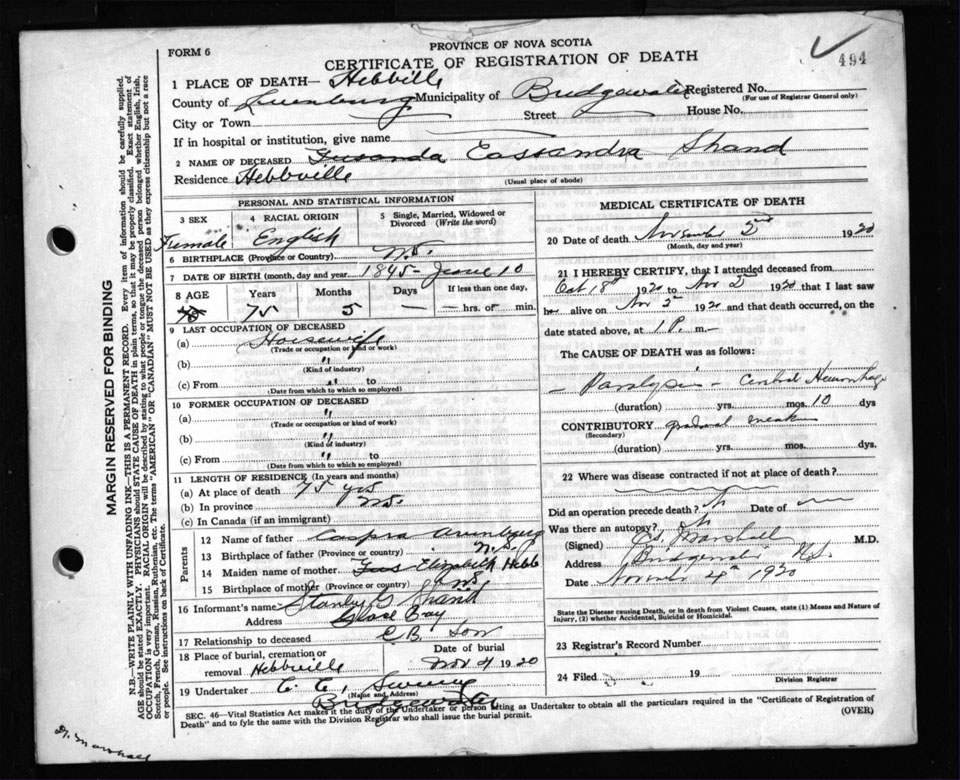 PROVINCE OF NOVA SCOTIA
FORM 6
CERTIFICATE OF REGISTRATION OF DEATH
494
1 PLACE OF DEATH— Hebbville
County of Lunenburg Municipality of Bridgewater Registered No.
(For use of Registrar General only)
City or Town Street House No.
If in hospital or institution, give name
2 NAME OF DECEASED Cassandra Shand
Residence Hebbville (Usual place of abode)
PERSONAL AND STATISTICAL INFORMATION
3 SEX 4 RACIAL ORIGIN 5 Single, Married, Widowed or Divorced (Write the word)
Female English
6 BIRTHPLACE (Province or Country) N.S.
7 DATE OF BIRTH (month, day and year) 1845- June 10
8 AGE Years Months Days If less than one day,
75 5 — — hrs. or — min.
9 LAST OCCUPATION OF DECEASED
(a) Housewife
(Trade or occupation or kind of work)
(b) "
(Kind of industry)
(c) From " to
(Date from which to which so employed)
10 FORMER OCCUPATION OF DECEASED
(a) "
(Trade or occupation or kind of work)
(b) "
(Kind of industry)
(c) From " to
(Date from which to which so employed)
11 LENGTH OF RESIDENCE (In years and months)
(a) At place of death 75 yrs
(b) In province N.S.
(c) In Canada (if an immigrant)
Parents
12 Name of father
13 Birthplace of father (Province or country) N.S.
14 Maiden name of mother Elizabeth Hebb
15 Birthplace of mother (Province or country) N.S.
16 Informant's name Stanley G Shand
Address Glace Bay
17 Relationship to deceased C.B. Son
18 Place of burial, cremation or removal Hebbville
Date of burial
Nov 4 1920
19 Undertaker C. C.
(Name and Address)
Bridgewater
MEDICAL CERTIFICATE OF DEATH
20 Date of death November 2nd 1920
(Month, day and year)
21 I HEREBY CERTIFY, that I attended deceased from
Oct 18th 1920 to Nov 2nd 1920 that I last saw
her alive on Nov 2nd 1920 and that death occurred, on the
date stated above, at 1 P. m.—
The CAUSE OF DEATH was as follows:
— Paralysis — Hemorrhage
(duration) yrs. mos. 10 dys
CONTRIBUTORY gradual
(Secondary)
(duration) yrs. mos. dys.
22 Where was disease contracted if not at place of death?
Did an operation precede death? No Date of
Was there an autopsy? No
(Signed) Marshall M.D.
Address Bridgewater N.S.
Date November 4th 1920
State the Disease causing Death, or in death from Violent Causes, state (1) Means and Nature of
Injury, (2) whether Accidental, Suicidal or Homicidal.
23 Registrar's Record Number
24 Filed 19
Division Registrar
SEC. 46—Vital Statistics Act makes it the duty of the Undertaker or person acting as Undertaker to obtain all the particulars required in the "Certificate of Registration of
Death" and to fyle the same with the Division Registrar who shall issue the burial permit. (OVER)
MARGIN RESERVED FOR BINDING
N.B.—WRITE PLAINLY WITH UNFADING INK—THIS IS A PERMANENT RECORD. Every item of information should be carefully supplied.
AGE should be stated EXACTLY. PHYSICIANS should STATE CAUSE OF DEATH in plain terms, so that it may be properly classified. Exact statement of
OCCUPATION is very important. RACIAL ORIGIN will be described by stating to what people or tongue the deceased person belonged whether English, Irish,
Scotch, French, German, Russian, Ruthenian, etc. The terms "AMERICAN" or "CANADIAN" MUST NOT BE USED as they express citizenship but not a race
or people. See instructions on back of Certificate.
Marshall